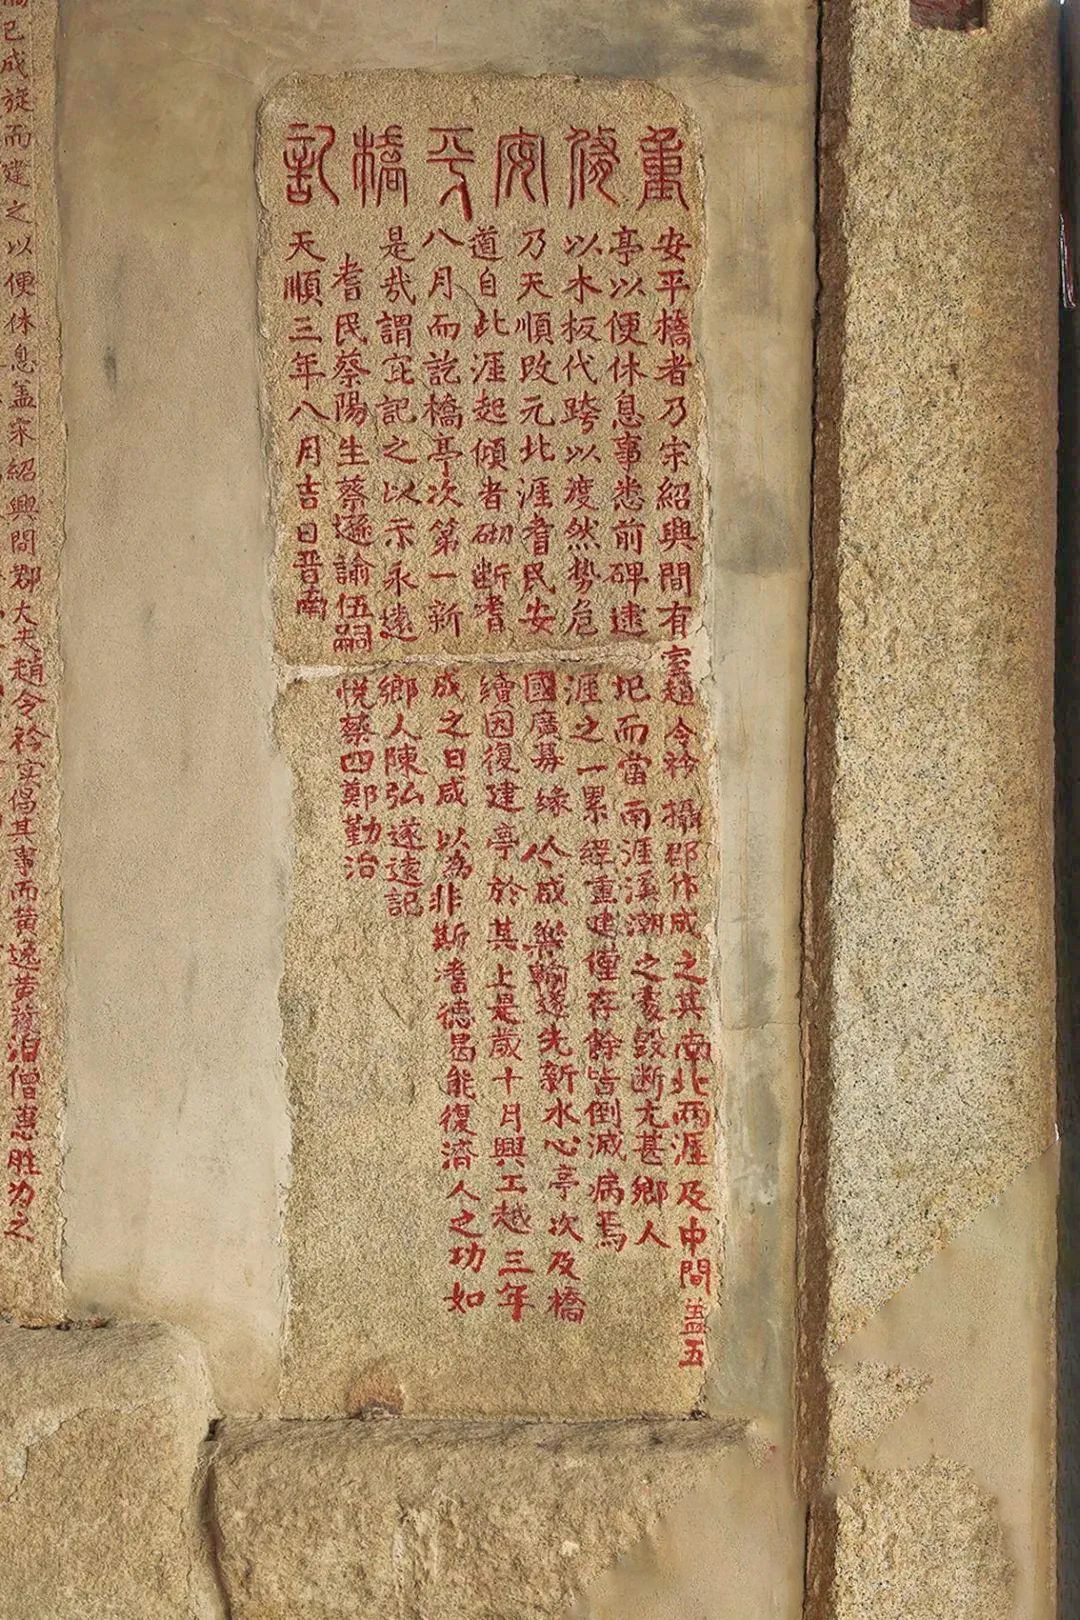 重修安平橋記
安平橋者乃宋紹興間有室趙令衿攝郡作成之其南北兩涯及中間盖五
亭以便休息事悉前碑逮圯而當南涯溪潮之毀断尤甚鄉人
以木板代跨以渡然勢危涯之一累經重建僅存餘皆倒滅病焉
乃天順改元北涯耆民安國廣募緣人咸樂輸遂先新水心亭次及橋
道自此涯起傾者砌断耆續因復建亭於其上是歲十月興工越三年
八月而訖橋亭次第一新成之日咸以為非斯耆德曷能復濟人之功如
是哉謂宜記之以示永遠鄉人陳弘遂遠記
耆民蔡陽生蔡遜諭伍嗣悅蔡四鄭勤治
天順三年八月吉日晋南
已成旋而建之以便休息盖宋紹興間郡大夫趙令衿实倡其事而黄逸黄護洎僧惠胜为之